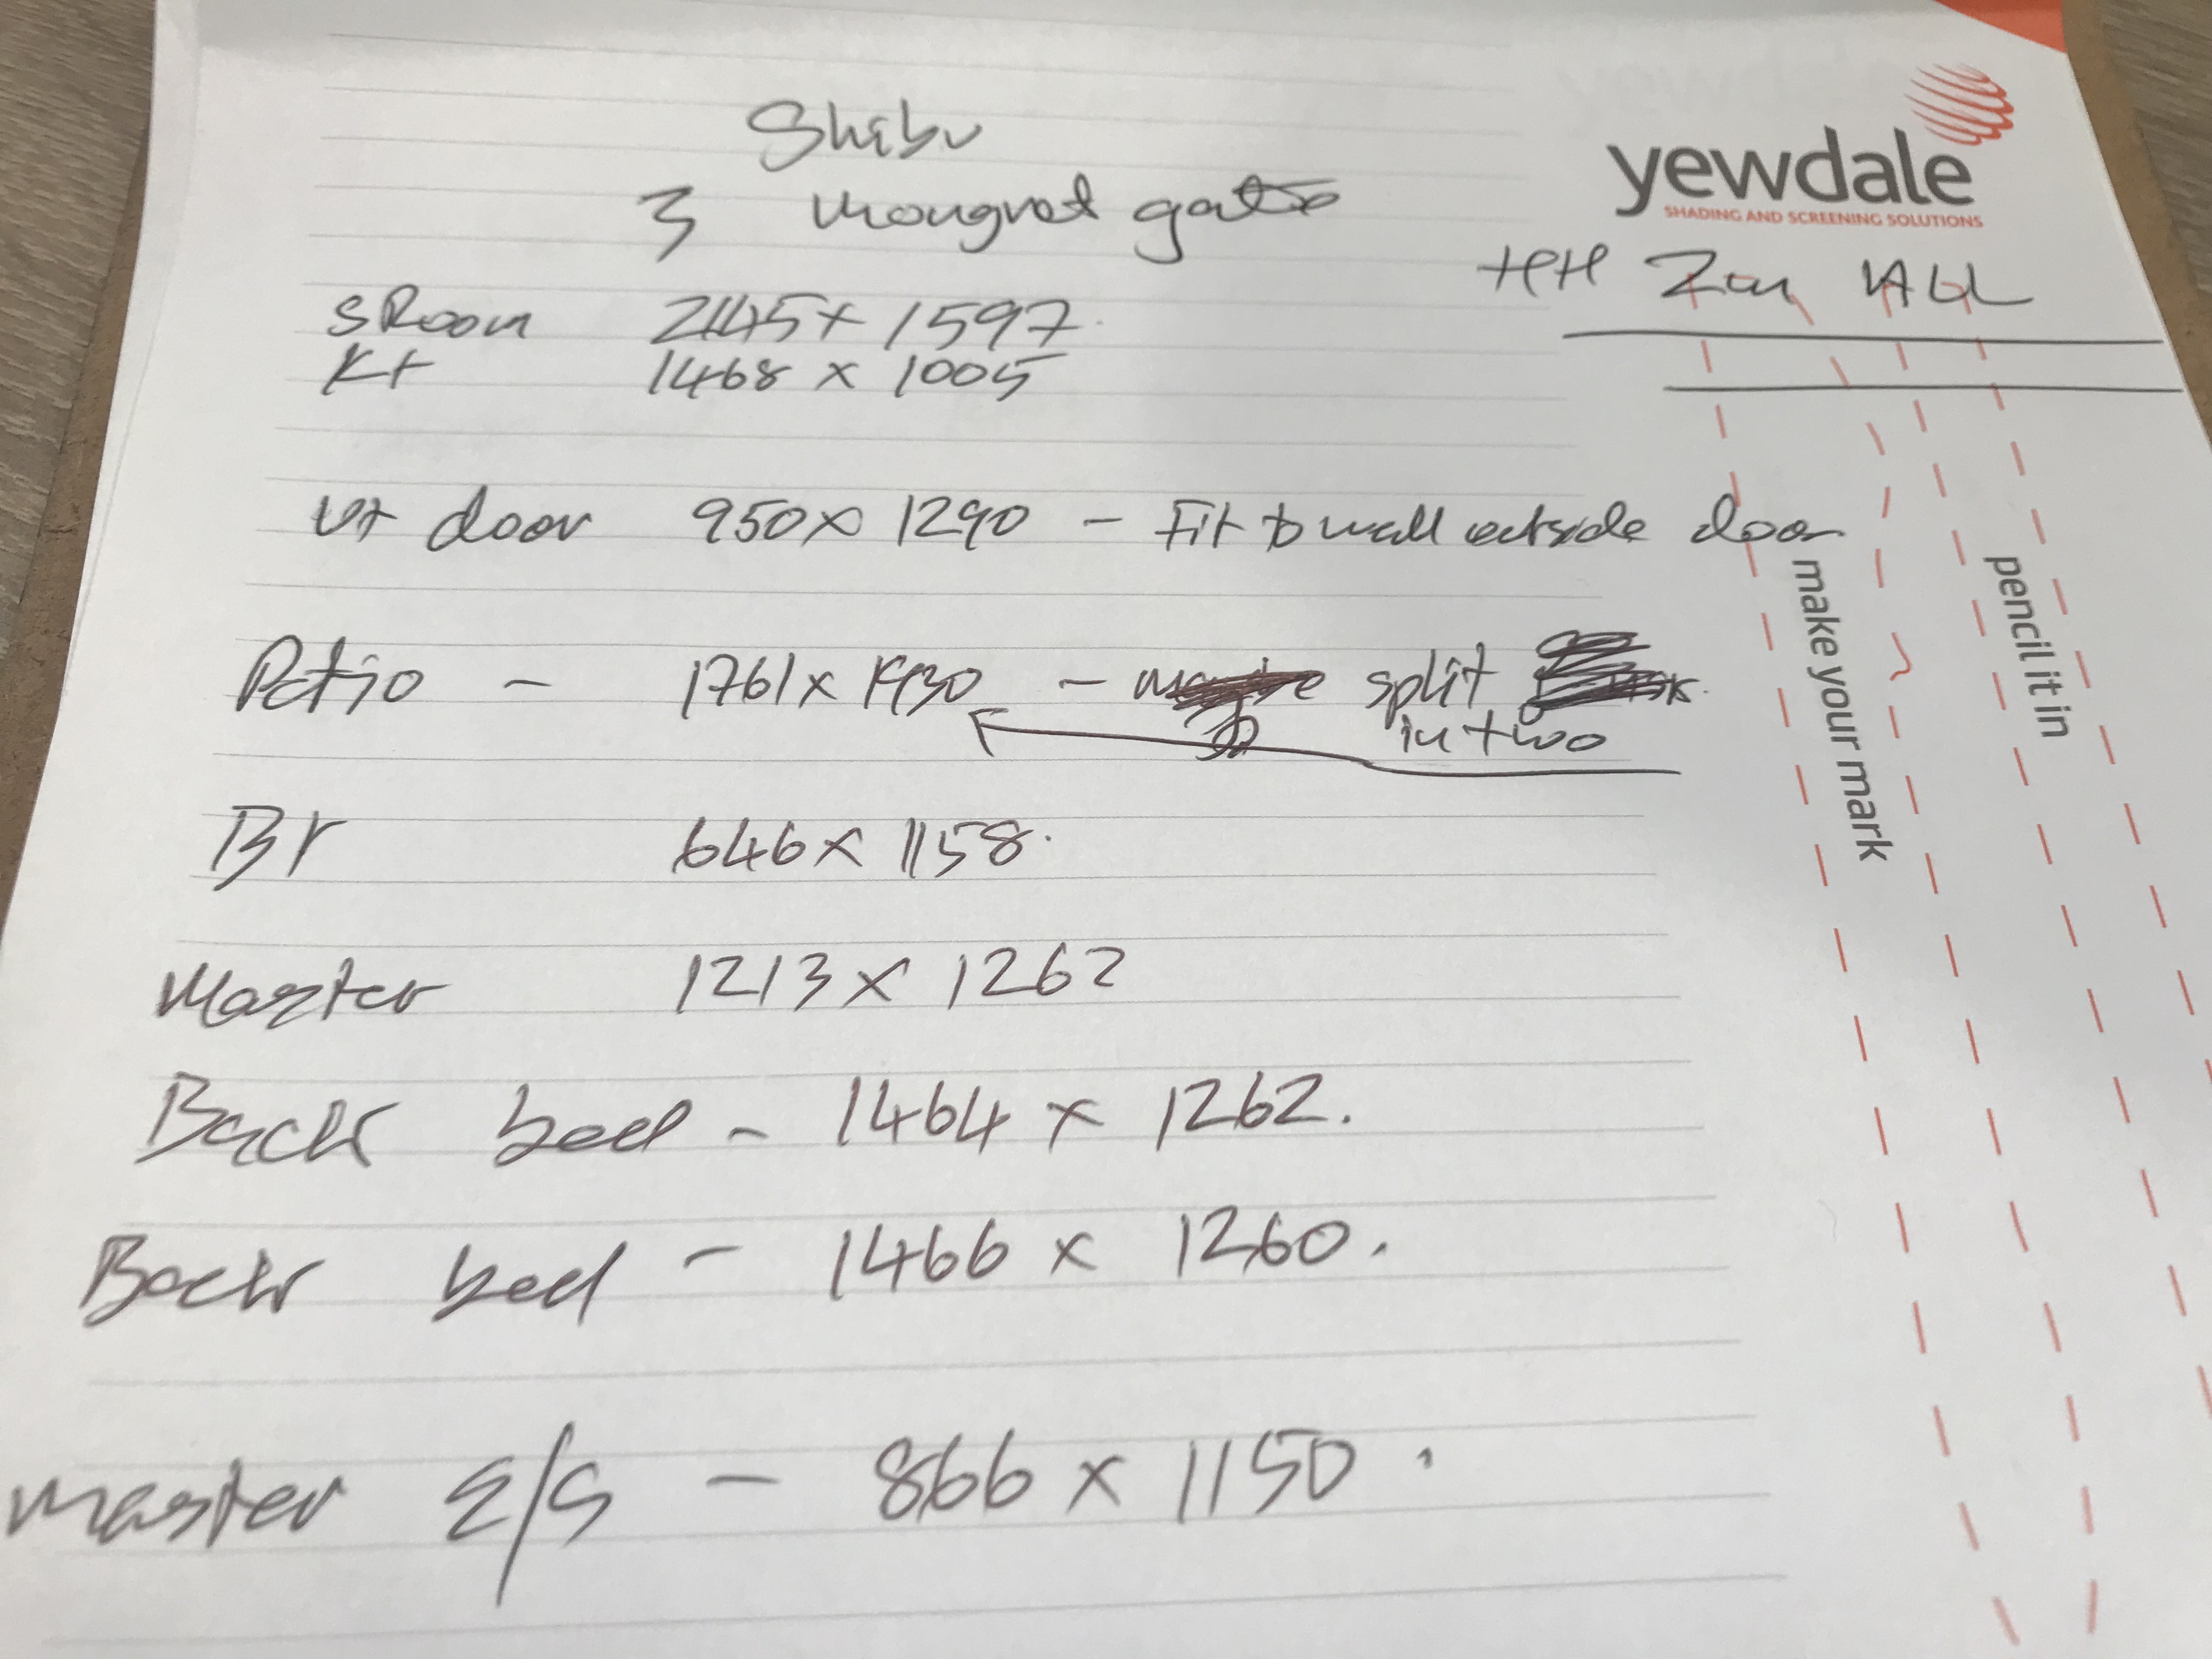 yewdale
SHADING AND SCREENING SOLUTIONS
Shibu
3 gate
HH 2m ALL
S Room 2145 x 1597
Kt 1468 x 1005
Ut door 950 x 1290 - Fit to wall outside door
Patio - 1761 x 1930 - split
in two
Br 646 x 1158.
Master 1213 x 1262
Back bed - 1464 x 1262.
Back bed - 1466 x 1260.
Master E/S - 866 x 1150.
make your mark
pencil it in